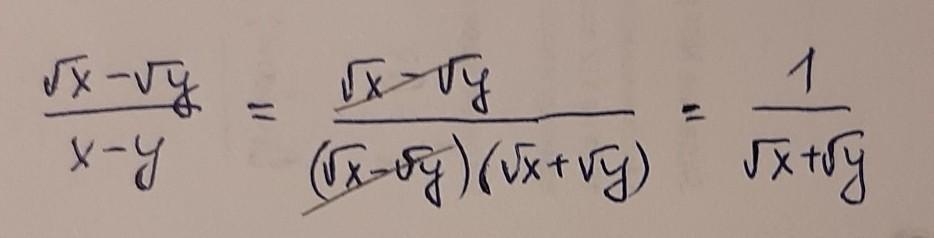 (√x-√y)/(x-y) = (√x-√y)/((√x-√y)(√x+√y)) = 1/(√x+√y)